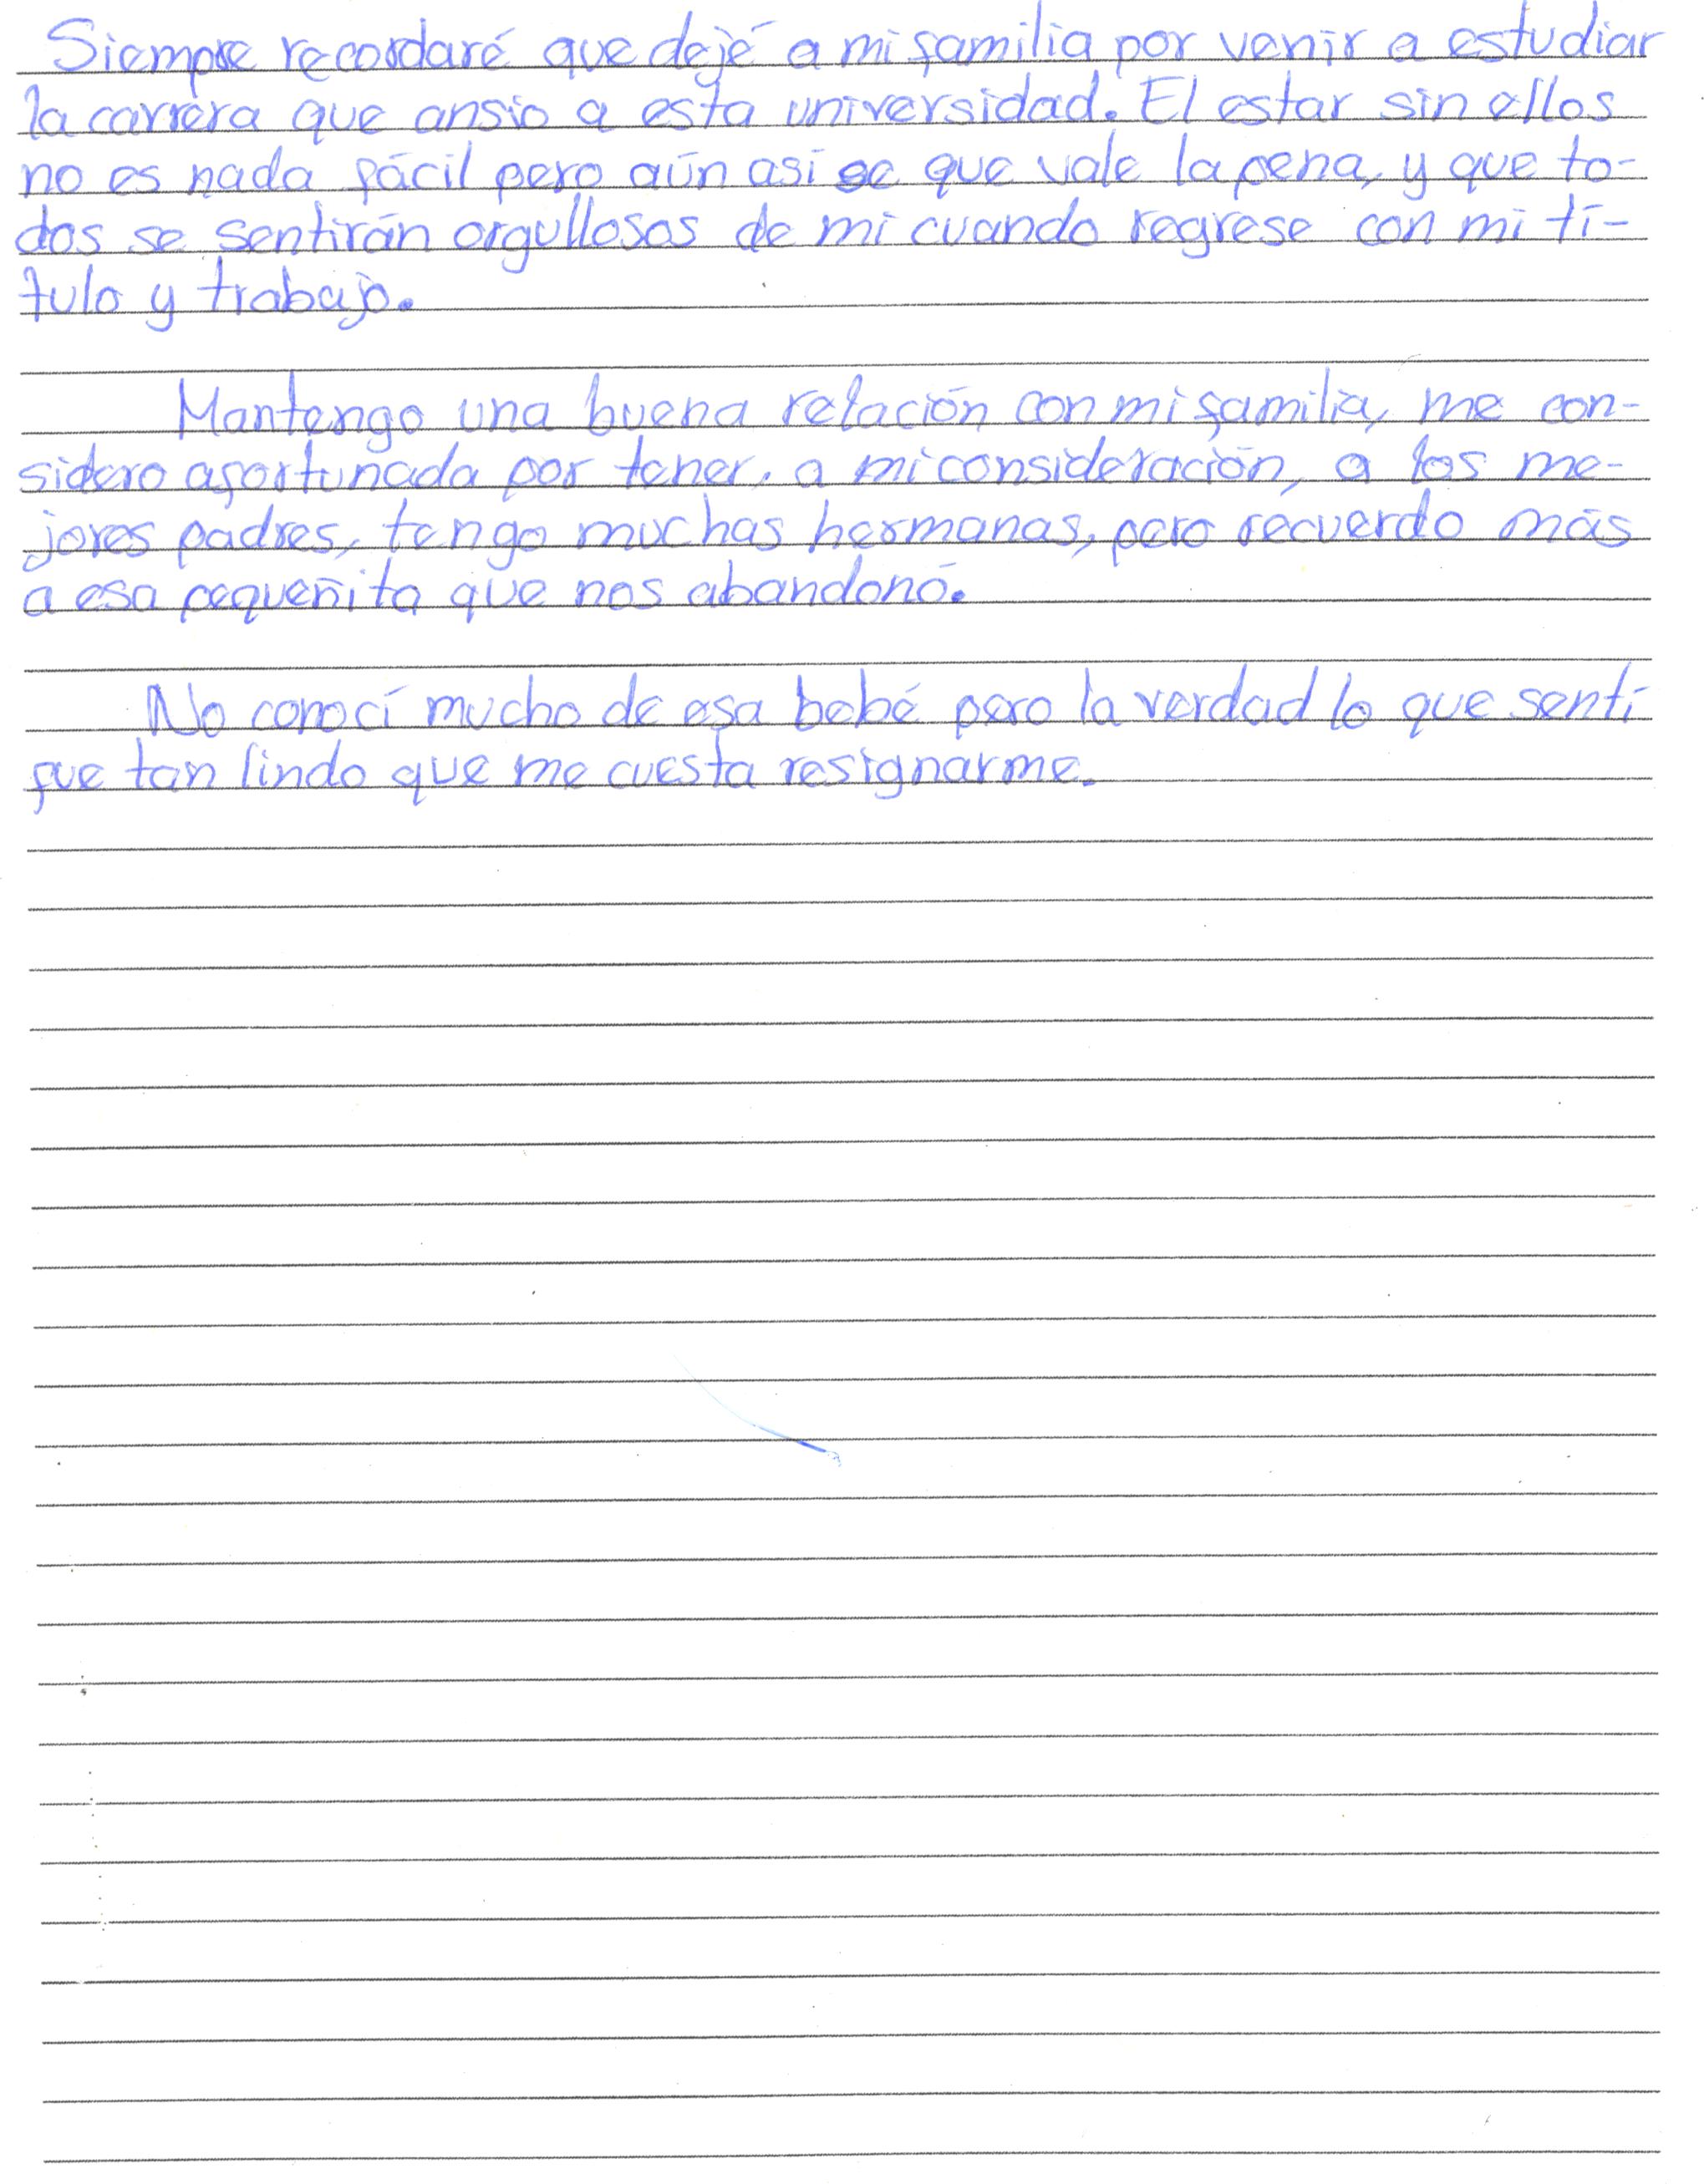 Siempre recordaré que dejé a mi familia por venir a estudiar
la carrera que ansio a esta universidad. El estar sin ellos
no es nada fácil pero aún asi se que vale la pena, y que to-
dos se sentirán orgullosos de mi cuando regrese con mi tí-
tulo y trabajo.
Mantengo una buena relación con mi familia, me con-
sidero afortunada por tener, a mi consideración, a los me-
jores padres, tengo muchas hermanas, pero recuerdo más
a esa pequeñita que nos abandonó.
No conocí mucho de esa bebé pero la verdad lo que sentí
fue tan lindo que me cuesta resignarme.